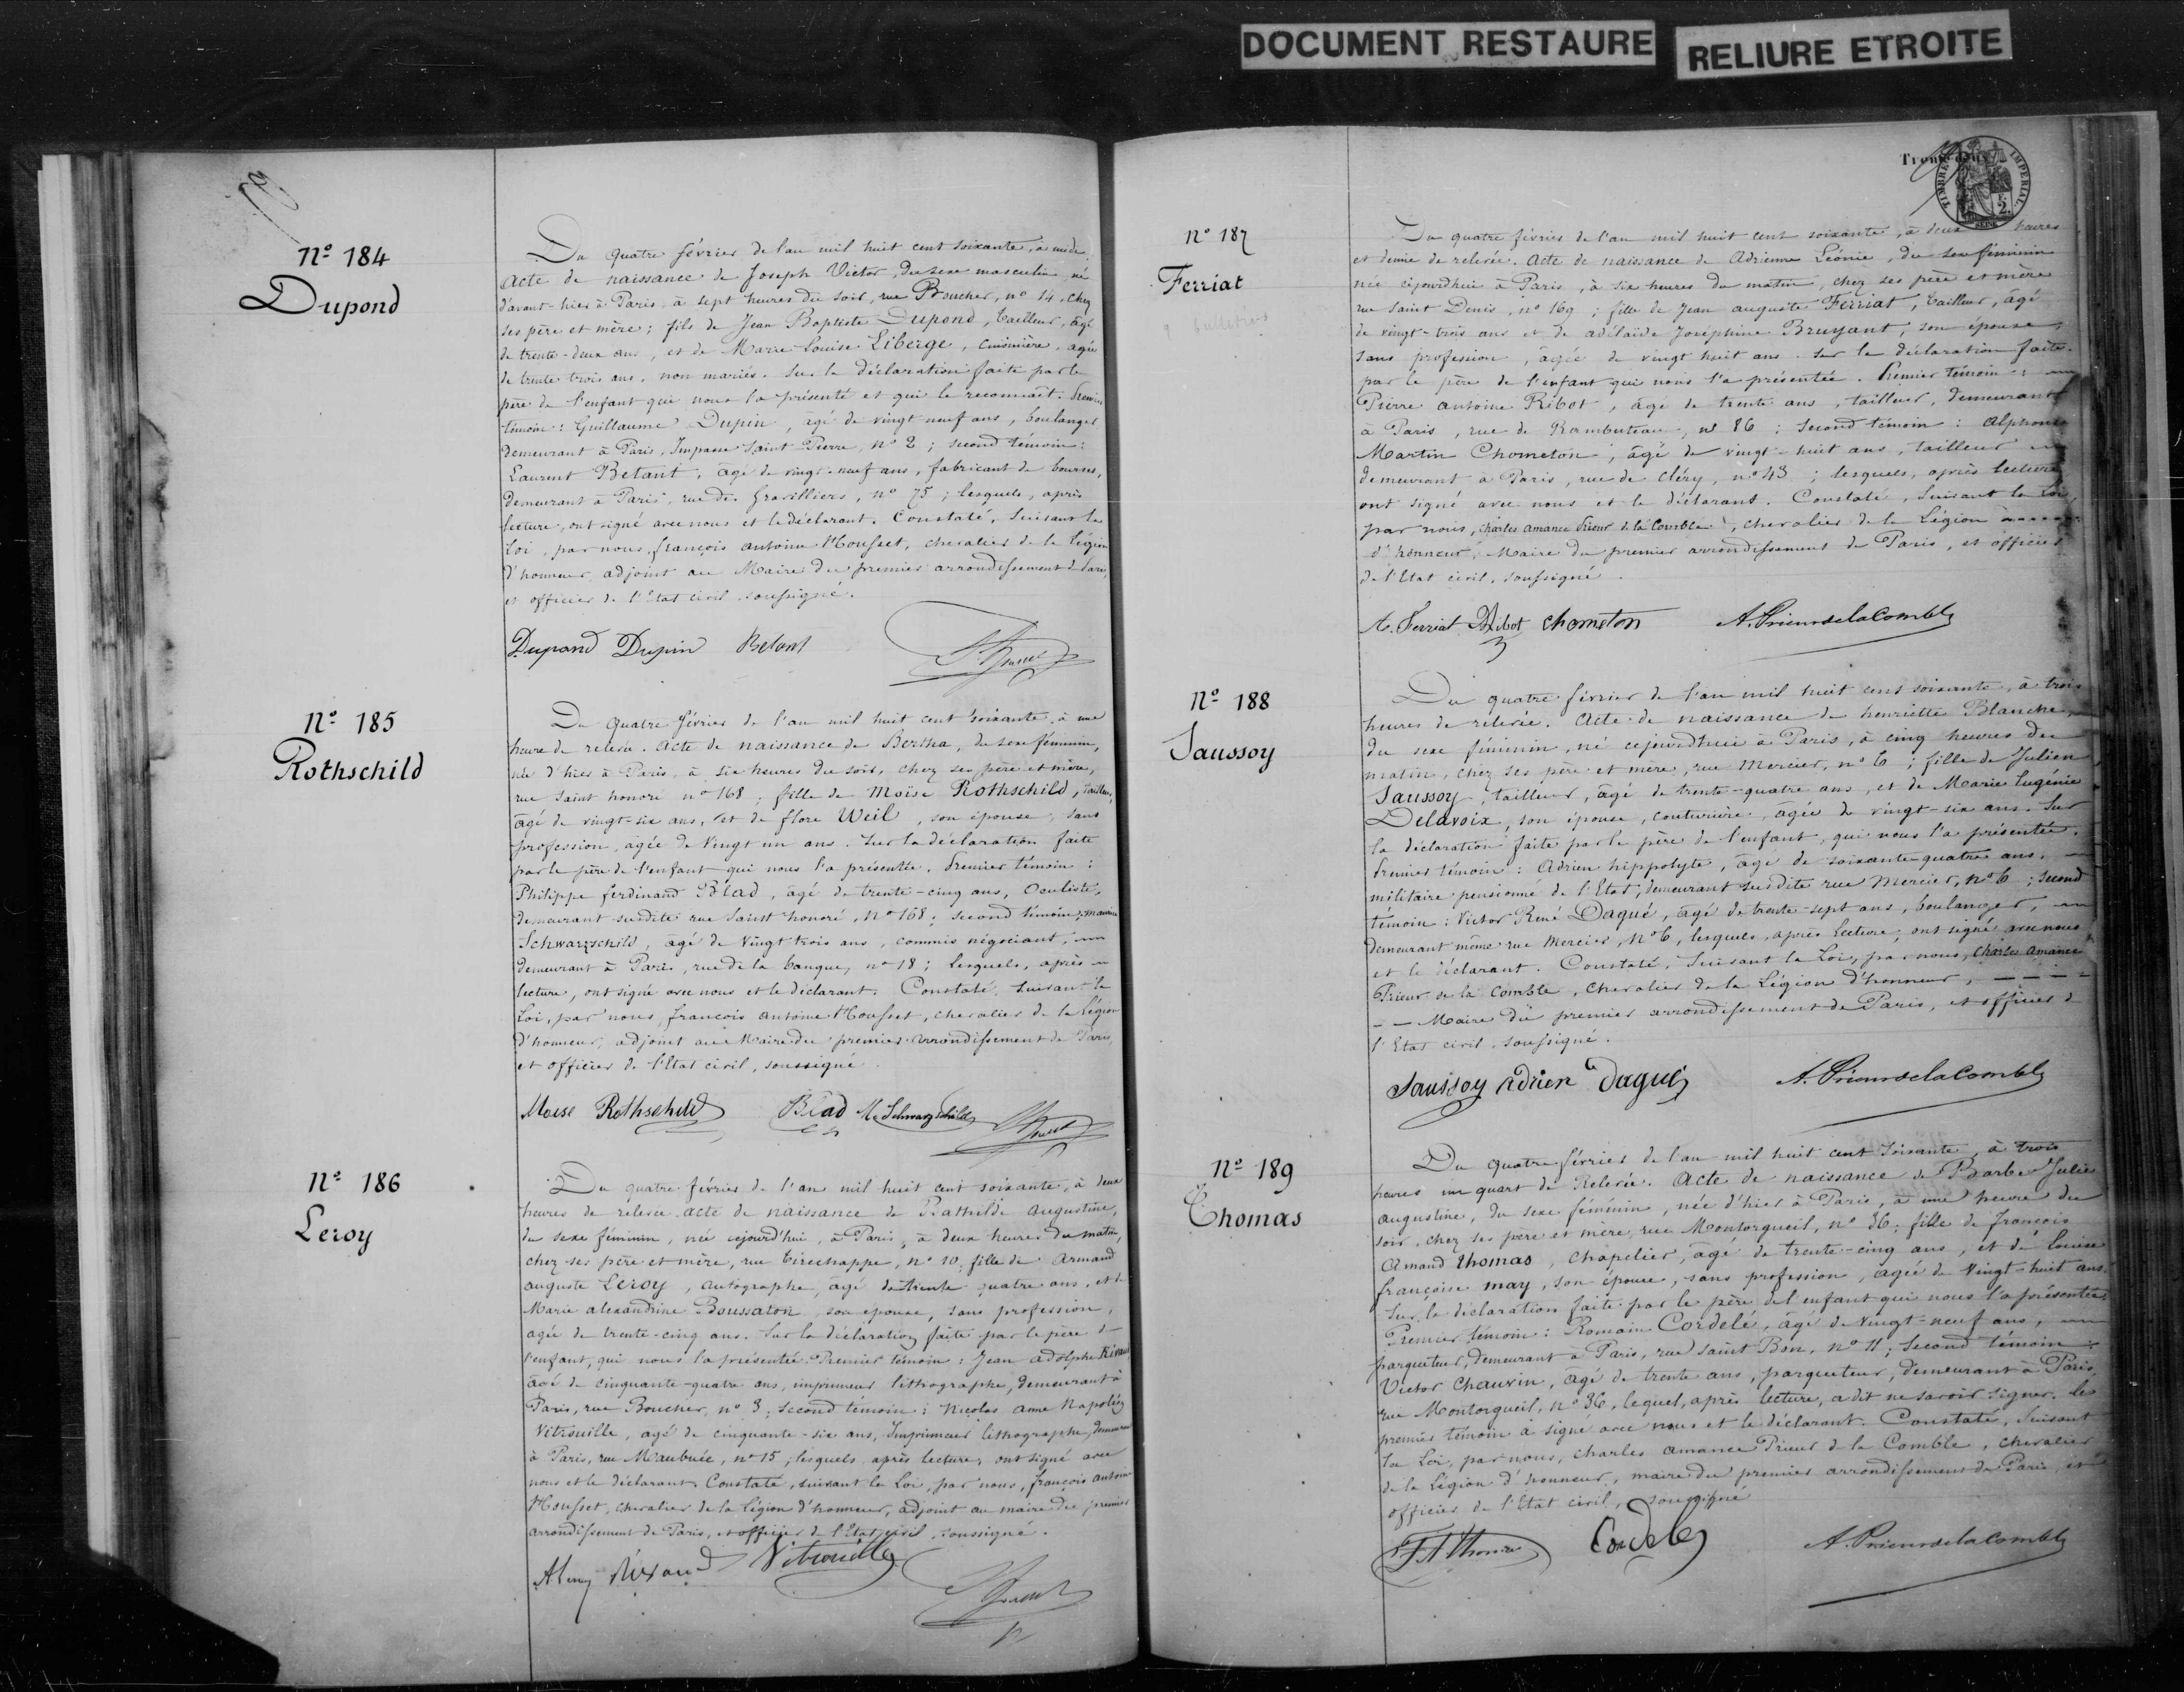 DOCUMENT RESTAURE
RELIURE ETROITE
N° 184
Dupond
Du quatre février de l'an mil huit cent soixante, à midi.
Acte de naissance de Joseph Victor, du sexe masculin, né
d'avant-hier à Paris à sept heures du soir, rue Boucher, n° 14, chez
ses père et mère; fils de Jean Baptiste Dupond, tailleur, âgé
de trente-deux ans, et de Marie Louise Liberge, cuisinière, âgée
de trente trois ans, non mariés. Sur la déclaration faite par le
père de l'enfant qui nous l'a présenté et qui le reconnaît. Premier
témoin: Guillaume Dupin, âgé de vingt neuf ans, boulanger
demeurant à Paris, Impasse Saint Pierre, n° 2; second témoin:
Laurent Betant, âgé de vingt-neuf ans, fabricant de bourses,
demeurant à Paris, rue des Gravilliers, n° 75; lesquels, après
lecture, ont signé avec nous et le déclarant. Constaté, suivant la
Loi, par nous, françois antoine Housset, chevalier de la Légion
d'honneur, adjoint au Maire du premier arrondissement de Paris,
et officier de l'Etat civil soussigné.
Dupond Dupin Betant
N° 185
Rothschild
Du quatre février de l'an mil huit cent soixante à une
heure de relevée. Acte de naissance de Bertha, du sexe féminin,
née d'hier à Paris, à six heures du soir, chez ses père et mère,
rue Saint honoré n° 168; fille de Moïse Rothschild, tailleur,
âgé de vingt-six ans, et de flore Weil, son épouse, sans
profession, âgée de Vingt un ans. Sur la déclaration faite
par le père de l'enfant qui nous l'a présentée. Premier témoin:
Philippe ferdinand Blad, âgé de trente-cinq ans, Oculiste,
demeurant susdite rue Saint honoré, N° 168; second témoin: maurice
Schwarzschild, âgé de Vingt trois ans, commis négociant,
demeurant à Paris, rue de la banque, n° 18; lesquels, après
lecture, ont signé avec nous et le déclarant. Constaté, suivant la
Loi, par nous, françois antoine Housset, chevalier de la Légion
d'honneur, adjoint au Maire du premier arrondissement de Paris,
et officier de l'Etat civil, soussigné.
Moïse Rothschild Blad M. Schwarzschild
N° 186
Leroy
Du quatre février de l'an mil huit cent soixante, à deux
heures de relevée. acte de naissance de Bathilde augustine,
du sexe féminin, née cejourd'hui, à Paris, à deux heures du matin,
chez ses père et mère, rue tirechappe, n° 10, fille de armand
auguste Leroy, autographe, âgé de trente quatre ans, et de
Marie alexandrine Boussaton, son épouse, sans profession,
agée de trente-cinq ans. Sur la déclaration faite par le père de
l'enfant, qui nous l'a présentée. Premier témoin: Jean adolphe Rivaud
âgé de cinquante-quatre ans, imprimeur lithographe, demeurant à
Paris, rue Boucher, n° 3; second témoin: Nicolas anne Napoléon
Vitrouille, agé de cinquante-six ans, Imprimeur lithographe, demeurant
à Paris, rue Maubuée, n° 15, lesquels après lecture, ont signé avec
nous et le déclarant. Constaté, suivant la Loi, par nous, françois antoine
Housset, chevalier de la légion d'honneur, adjoint au maire du premier
arrondissement de Paris, et officier de l'Etat civil, soussigné.
A Leroy Rivaud Vitrouille
TIMBRE IMPERIAL
2
SEINE
N° 187
Ferriat
9 bulletins
Du quatre février de l'an mil huit cent soixante, à deux heures
et demie de relevée. Acte de naissance de Adrienne Léonie, du sexe féminin
née cejourd'hui à Paris, à six heures du matin, chez ses père et mère
rue Saint Denis, n° 169; fille de Jean auguste Ferriat, tailleur, âgé
de vingt-trois ans et de adélaïde Joséphine Bruyant, son épouse,
sans profession, âgée de vingt huit ans. Sur la déclaration faite
par le père de l'enfant qui nous l'a présentée. Premier témoin:
Pierre antoine Ribot, âgé de trente ans, tailleur, demeurant
à Paris, rue de Rambuteau, n° 86; Second témoin: alphonse
Martin Chometon, âgé de vingt-huit ans, tailleur
demeurant à Paris, rue de Cléry, n° 43; lesquels, après lecture
ont signé avec nous et le déclarant. Constaté, Suivant la Loi,
par nous, charles amance Prieur de la Comble, chevalier de la Légion
d'honneur, Maire du premier arrondissement de Paris, et officier
de l'Etat civil, soussigné.
A. Ferriat Ribot Chometon A. Prieur de la Comble
N° 188
Saussoy
Du quatre février de l'an mil huit cent soixante, à trois
heures de relevée. Acte de naissance de henriette Blanche,
du sexe féminin, né cejourd'hui à Paris, à cinq heures du
matin, chez ses père et mère, rue Mercier, n° 6; fille de Julien
Saussoy, tailleur, âgé de trente-quatre ans, et de Marie Eugénie
Delavoix, son épouse, couturière, âgée de vingt-six ans. Sur
la déclaration faite par le père de l'enfant, qui nous l'a présentée.
Premier témoin: Adrien hippolyte, âgé de soixante-quatre ans,
militaire pensionné de l'Etat, demeurant susdite rue Mercier, N° 6; second
témoin: Victor René Dagué, âgé de trente-sept ans, boulanger,
demeurant même rue Mercier, N° 6, lesquels, après Lecture, ont signé avec nous
et le déclarant. Constaté, Suivant la Loi, par nous, Charles amance
Prieur de la Comble, chevalier de la Légion d'honneur,
Maire du premier arrondissement de Paris, et officier de
l'Etat civil, soussigné.
Saussoy adrien Dagué A. Prieur de la Comble
N° 189
Thomas
Du quatre février de l'an mil huit cent soixante, à trois
heures un quart de Relevée. Acte de naissance de Barbe Julie
augustine, du sexe féminin, née d'hier à Paris, à une heure du
soir, chez ses père et mère, rue Montorgueil, n° 36; fille de françois
Amand thomas, chapelier, âgé de trente-cinq ans, et de louise
françoise may, son épouse, sans profession, âgée de Vingt-huit ans.
Sur la déclaration faite par le père de l'enfant qui nous l'a présentée.
Premier témoin: Romain Cordelé, âgé de Vingt-neuf ans,
parqueteur, demeurant à Paris, rue saint Bon, n° 11; Second témoin:
Victor Chauvin, âgé de trente ans, parqueteur, demeurant à Paris,
rue Montorgueil, N° 36, lequel, après lecture, a dit ne savoir signer. Le
premier témoin a signé avec nous et le déclarant. Constaté, Suivant
la Loi, par nous, Charles amance Prieur de la Comble, chevalier
de la Légion d'honneur, maire du premier arrondissement de Paris, et
officier de l'Etat civil, soussigné
F A Thomas Cordelé A. Prieur de la Comble